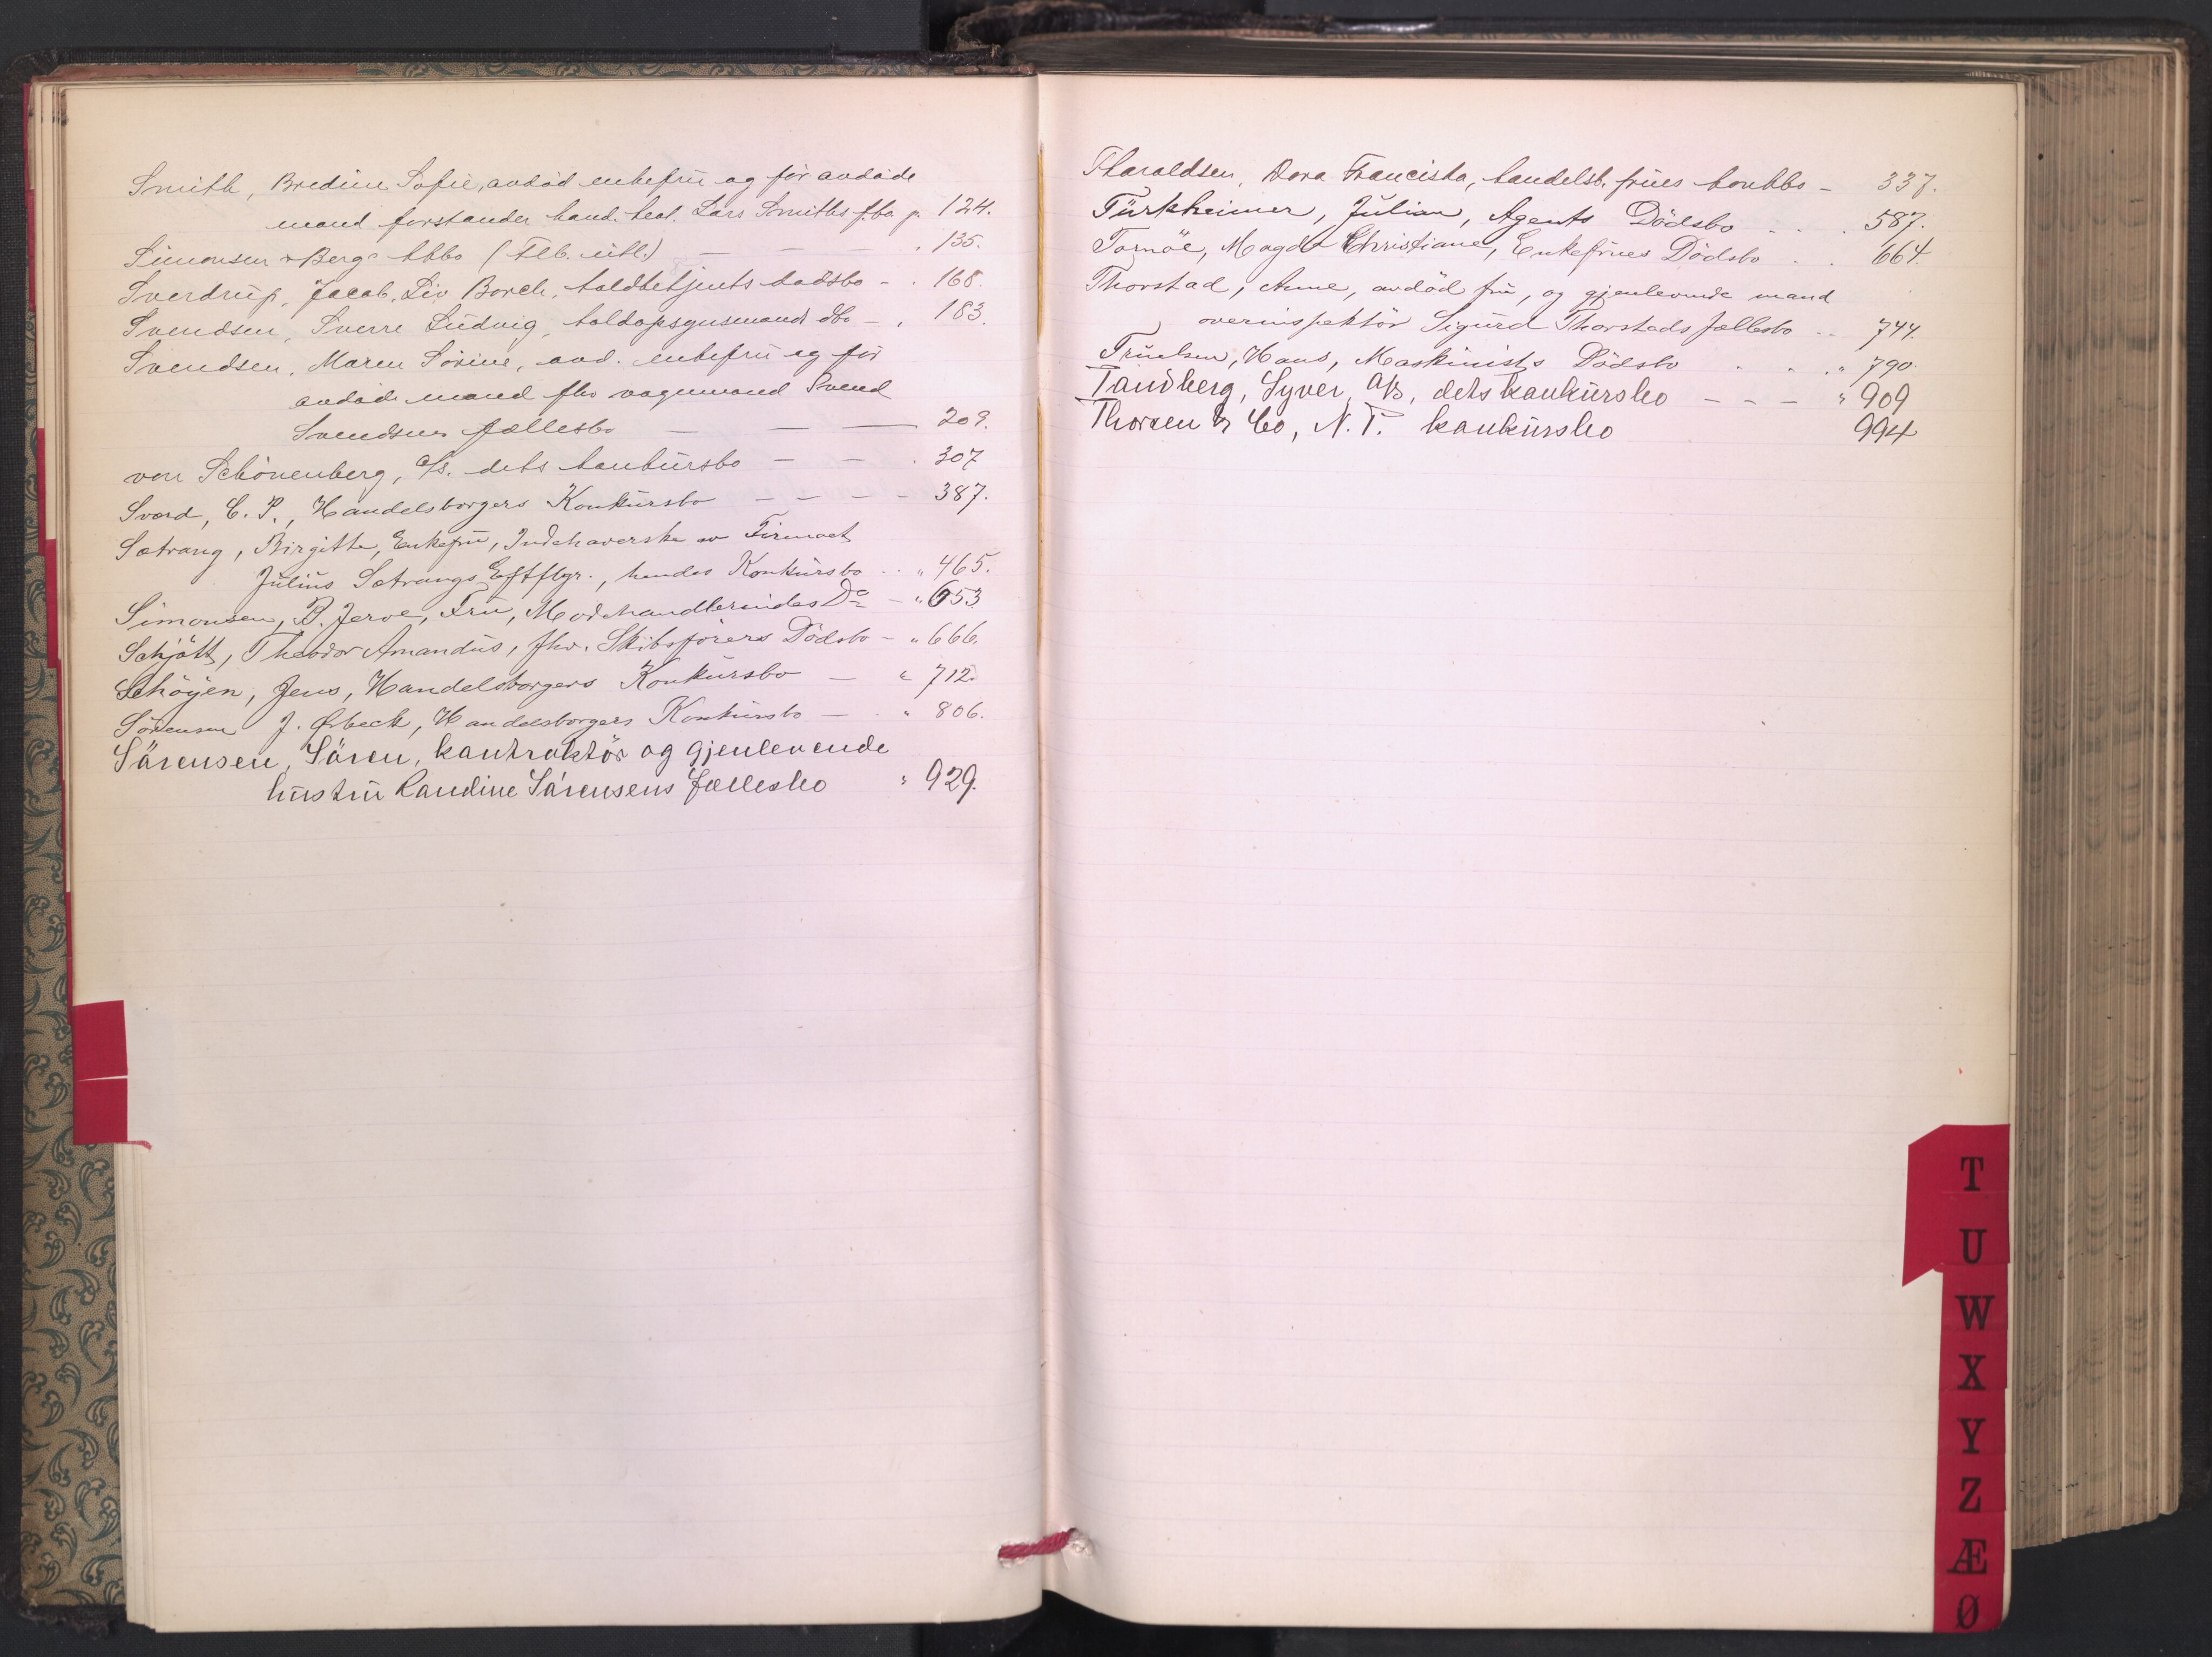 Smith, Bredine Sofie, avdöd enkefru og för avdöde
mand forstander kand. teol. Lars Smiths fbo p. 124.
Simonsen & Bergs kbbo (Flb. utl.) — — . 135.
Sverdrup, Jacob, Liv Borch, toldbetjents dödsbo - . 168.
Svendsen, Sverre Ludvig, toldopsynsmands dbo - . 183.
Svendsen, Maren Sörine, avd. enkefru og för
avdöde mand fhv vognmand Svend
Svendsens fællesbo — — — 209.
von Schönenberg, A/S. dets konkursbo — — . 307
Sværd, C. P., Handelsborgers Konkursbo - - - - 387.
Sætrang, Birgitte, Enkefru, Indehaverske av Firmaet
Julius Sætrangs Eftflgr., hendes Konkursbo .. „ 465.
Simonsen, B. Jerve, Fru, Modehandlerindes Do - „ 653
Schjött, Theodor Amandus, fhv. Skibsförers Dödsbo - „ 666.
Schöyen, Jens, Handelsborgers Konkursbo — „ 712.
Sörensen J. Ørbeck, Handelsborgers Konkursbo — „ 806.
Sörensen, Sören, kontraktör og gjenlevende
hustru Randine Sörensens fællesbo „ 929.
Tharaldsen, Dora Franciska, handelsb. frues konkbo - 337.
Türkheimer, Julian, Agents Dödsbo . . . 587.
Tornöe, Magda Christiane, Enkefrues Dödsbo . . 664.
Thorstad, Anne, avdöd fru, og gjenlevende mand
overinspektör Sigurd Thorstads fællesbo .. 744.
Truelsen, Hans, Maskinists Dödsbo . . . „ 790.
Tandberg, Syver, A/S, dets konkursbo - - - „ 909
Thorsen & Co, N. T. konkursbo 994
T
U
W
X
Y
Z
Æ
Ø